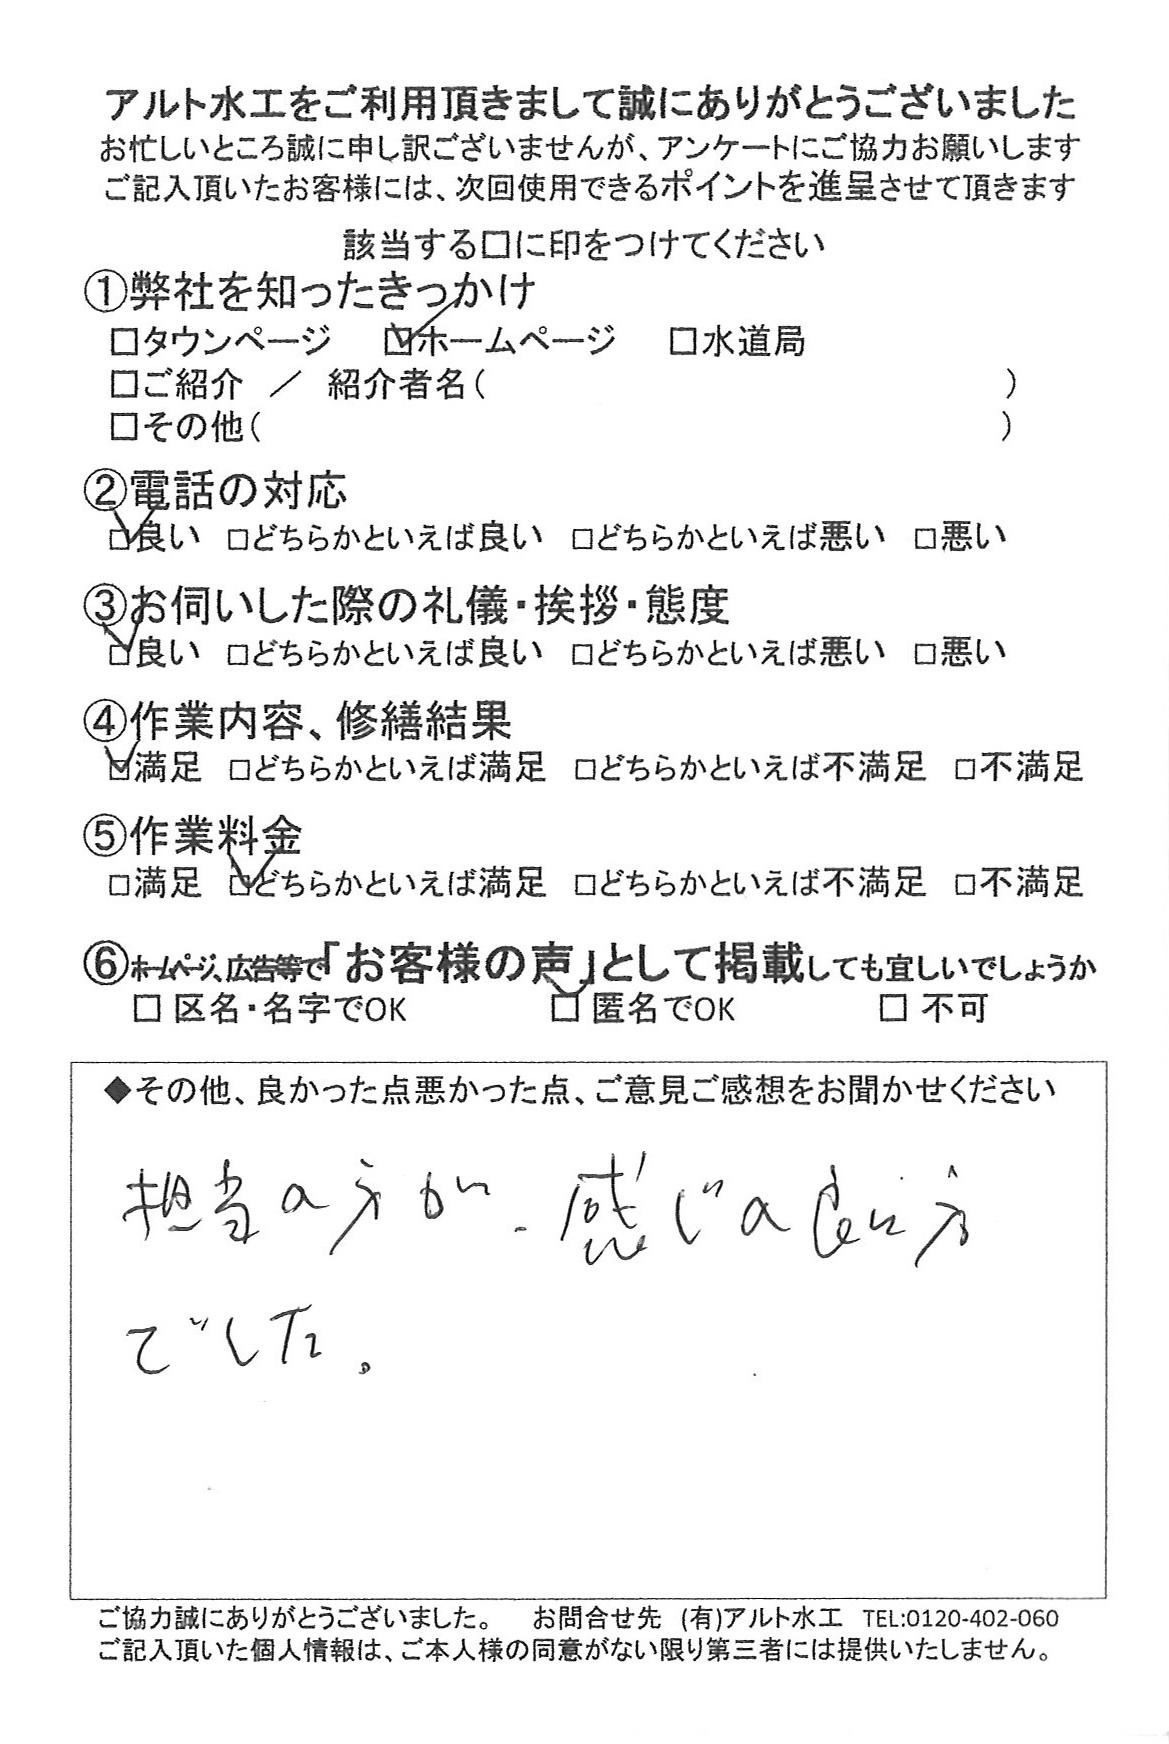 アルト水工をご利用頂きまして誠にありがとうございました
お忙しいところ誠に申し訳ございませんが、アンケートにご協力お願いします
ご記入頂いたお客様には、次回使用できるポイントを進呈させて頂きます
該当する□に印をつけてください
①弊社を知ったきっかけ
□タウンページ ☑ホームページ □水道局
□ご紹介 ／ 紹介者名( )
□その他( )
②電話の対応
☑良い □どちらかといえば良い □どちらかといえば悪い □悪い
③お伺いした際の礼儀・挨拶・態度
☑良い □どちらかといえば良い □どちらかといえば悪い □悪い
④作業内容、修繕結果
☑満足 □どちらかといえば満足 □どちらかといえば不満足 □不満足
⑤作業料金
□満足 ☑どちらかといえば満足 □どちらかといえば不満足 □不満足
⑥ホームページ、広告等で「お客様の声」として掲載しても宜しいでしょうか
□ 区名・名字でOK ☑ 匿名でOK □ 不可
◆その他、良かった点悪かった点、ご意見ご感想をお聞かせください
担当の方が、感じの良い方
でした。
ご協力誠にありがとうございました。 お問合せ先 (有)アルト水工 TEL:0120-402-060
ご記入頂いた個人情報は、ご本人様の同意がない限り第三者には提供いたしません。